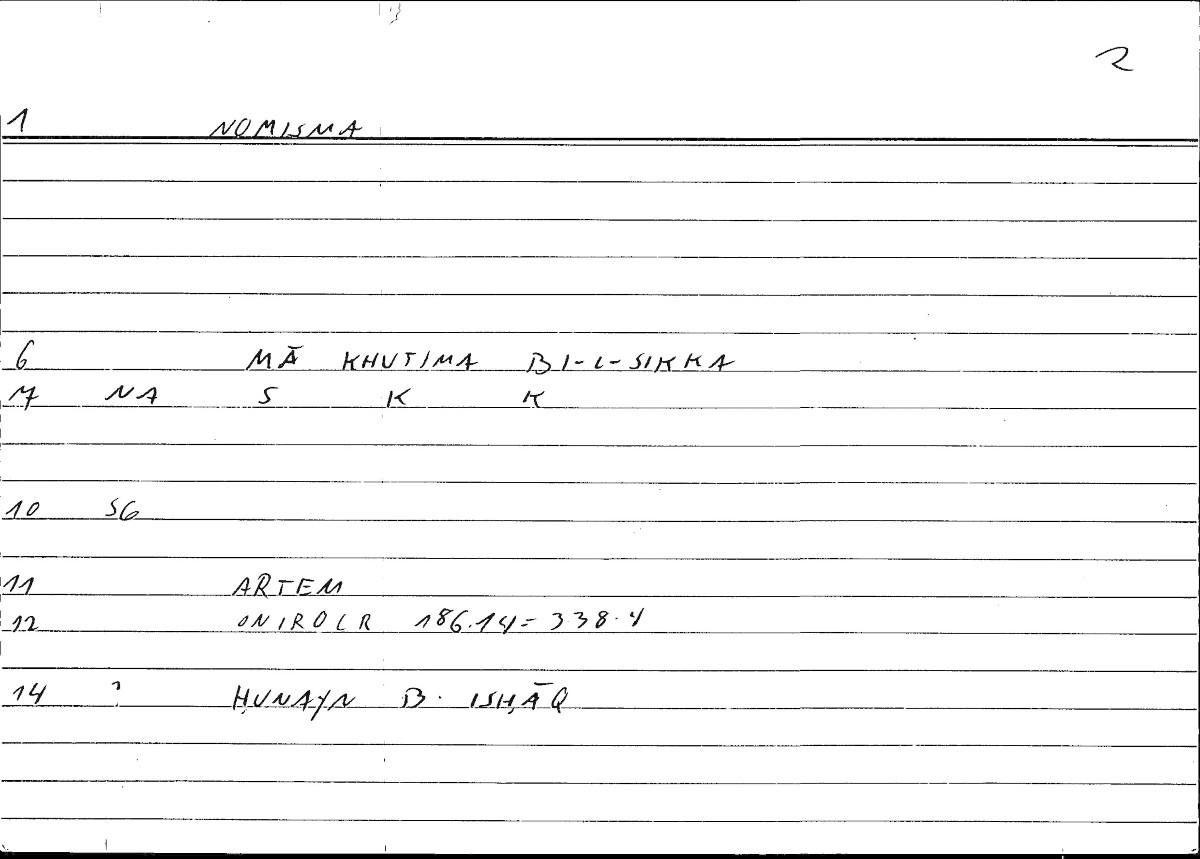 2
1 NOMISMA
6 MĀ KHUTIMA BI-L-SIKKA
7 NA S K K
10 SG
11 ARTEM
12 ONIROCR 186.14=338.4
14 ? ḤUNAYN B. ISḤĀQ